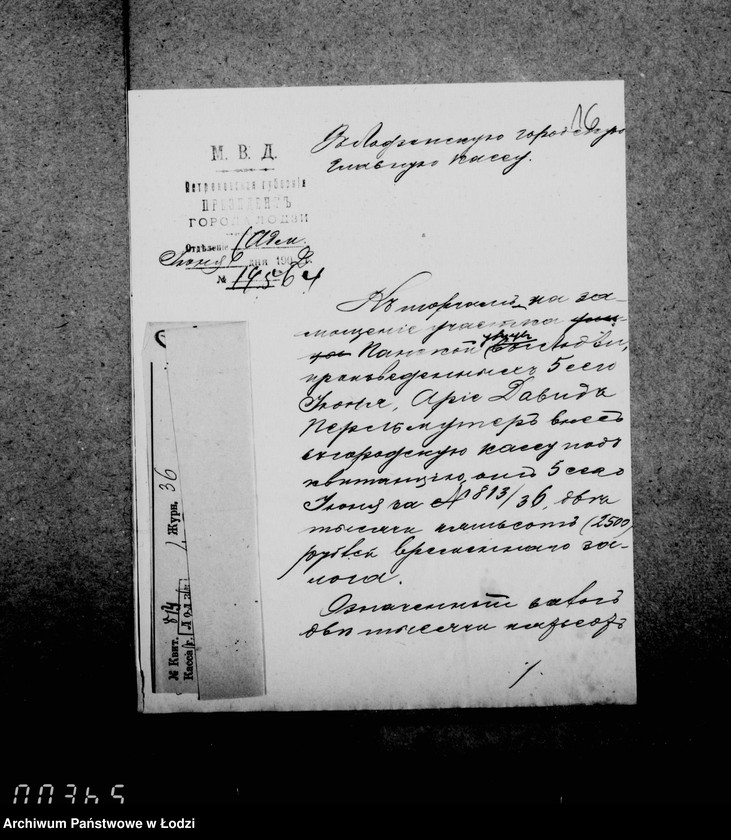 16
Въ Лодзинскую городскую
Главную Кассу.
М. В. Д.
Петроковская губернія
ПРЕЗИДЕНТЪ
ГОРОДА ЛОДЗИ
Отдѣленіе Адм.
Іюня дня 190
№
Къ торгамъ на за-
мощеніе участка
Панской улицы въ г. Лодзи,
произведенныхъ 5 сего
Іюня, Аріс Давидъ
Перльмутеръ внесъ
въ городскую кассу подъ
квитанцію отъ 5 сего
Іюня за № 813/36, двѣ
тысячи пятьсотъ (2500)
рублей временнаго за-
лога.
Означенный залогъ
двѣ тысячи пятьсотъ
№ Квит. Журн. 36
Касса г. Лодзи
00365
Archiwum Państwowe w Łodzi